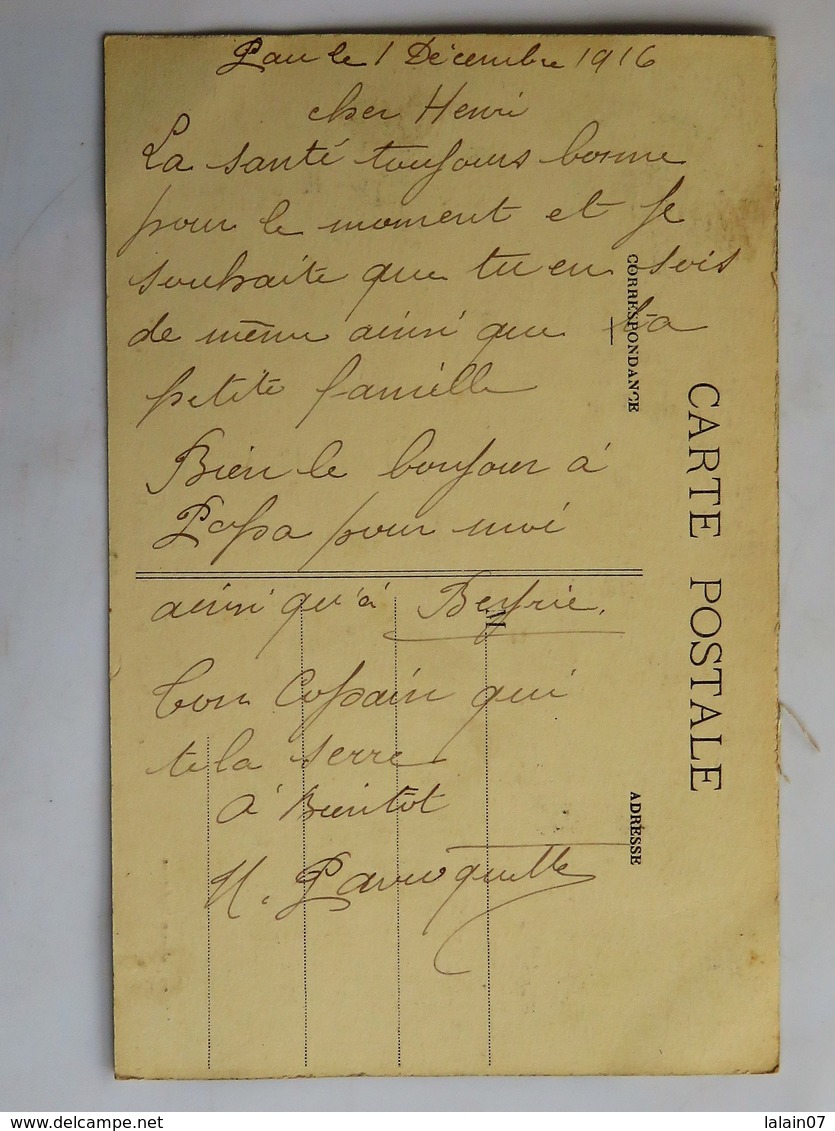 Pau le 1 Décembre 1916
cher Henri
La santé toujours bonne
pour le moment et je
souhaite que tu en sois
de même ainsi que ta
petite famille
Bien le bonjour à
Papa pour moi
ainsi qu'à
ton Copain qui
te la serre
à Bientôt
CORRESPONDANCE
CARTE POSTALE
M
ADRESSE
lalain07